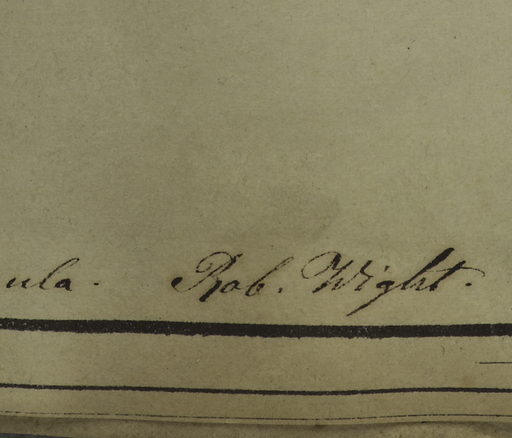 ula. Rob. Wight.